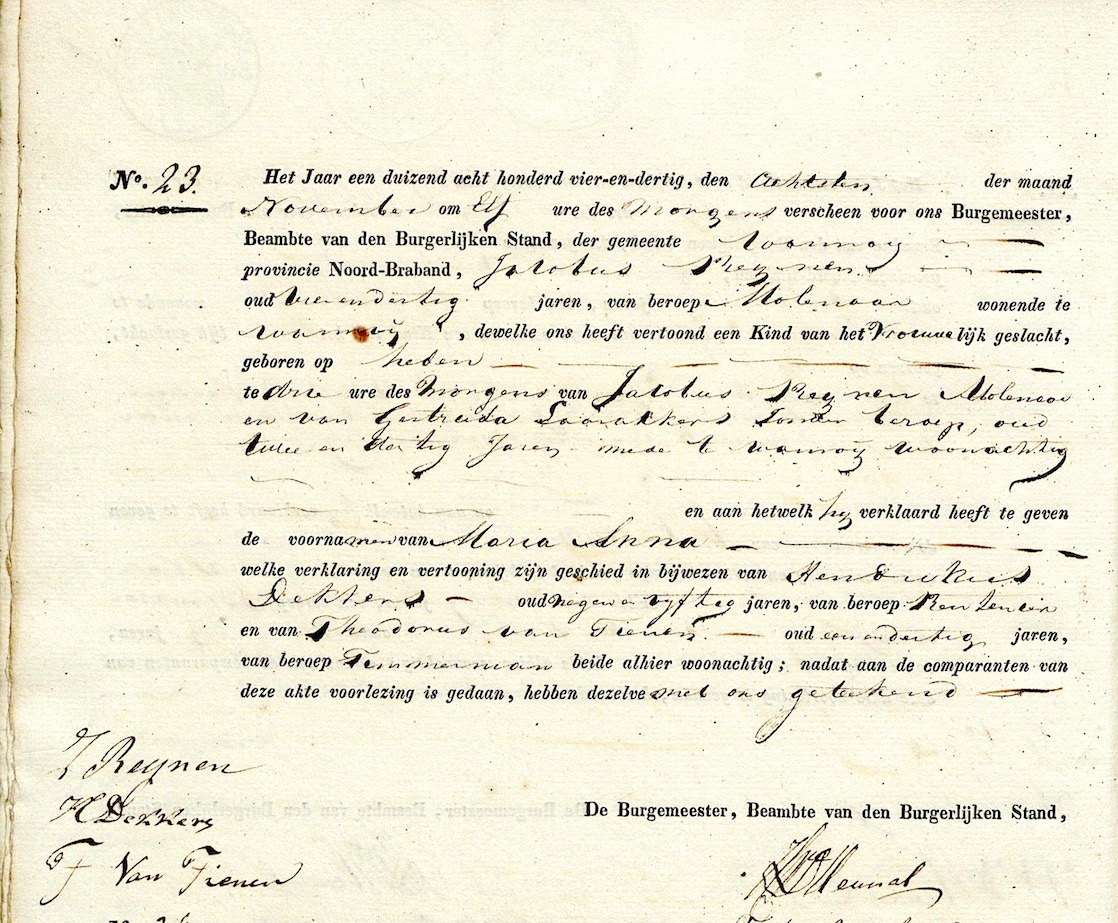 No. 23. Het Jaar een duizend acht honderd vier-en-dertig, den Achtsten der maand
November om Elf ure des Morgens verscheen voor ons Burgemeester,
Beambte van den Burgerlijken Stand, der gemeente Wanroy
provincie Noord-Braband, Jacobus Reynen
oud vier en dertig jaren, van beroep Molenaar wonende te
Wanroij, dewelke ons heeft vertoond een Kind van het Vrouwelijk geslacht,
geboren op heden
te drie ure des Morgens van Jacobus Reynen Molenaar
en van Gertruda zonder beroep, oud
twee en dertig Jaren mede te Wanroij woonachtig
en aan hetwelk hij verklaard heeft te geven
de voornamen van Maria Anna
welke verklaring en vertooning zijn geschied in bijwezen van Hendrikus
Dekkers oud negen en vyftig jaren, van beroep Rentenier
en van Theodorus van Tienen oud een en dertig jaren,
van beroep Timmerman beide alhier woonachtig; nadat aan de comparanten van
deze akte voorlezing is gedaan, hebben dezelve met ons getekend
J Reynen
H Dekkers
De Burgemeester, Beambte van den Burgerlijken Stand,
T Van Tienen